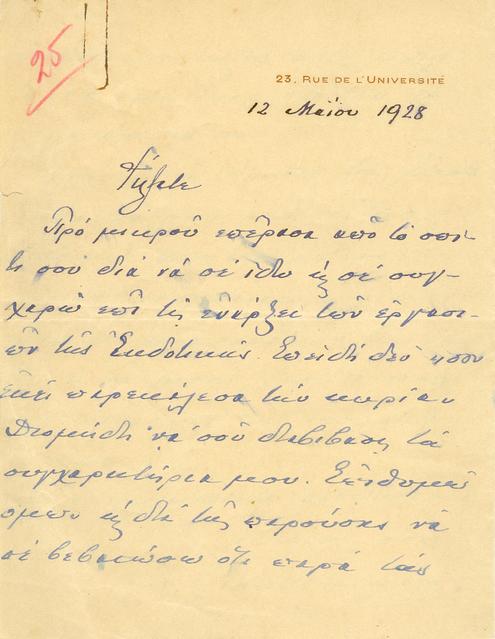 25
23, RUE DE L'UNIVERSITÉ
12 Μαΐου 1928
Φίλτατε
Πρό μικροῦ ἐπέρασα ἀπό τό σπί-
τι σου διά νά σέ ἰδῶ καί σέ συγ-
χαρῶ ἐπί τῇ ἐνάρξει τῶν ἐργασι-
ῶν τῆς Ἐκδοτικῆς. Ἐπειδή δέν ἤσου
ἐκεῖ παρεκάλεσα τήν κυρίαν
Διομήδη νά σοῦ διαβιβάσῃ τά
συγχαρητήρια μου. Ἐπιθυμῶ
ὅμως καί διά τῆς παρούσης νά
σέ βεβαιώσω ὅτι παρά τάς